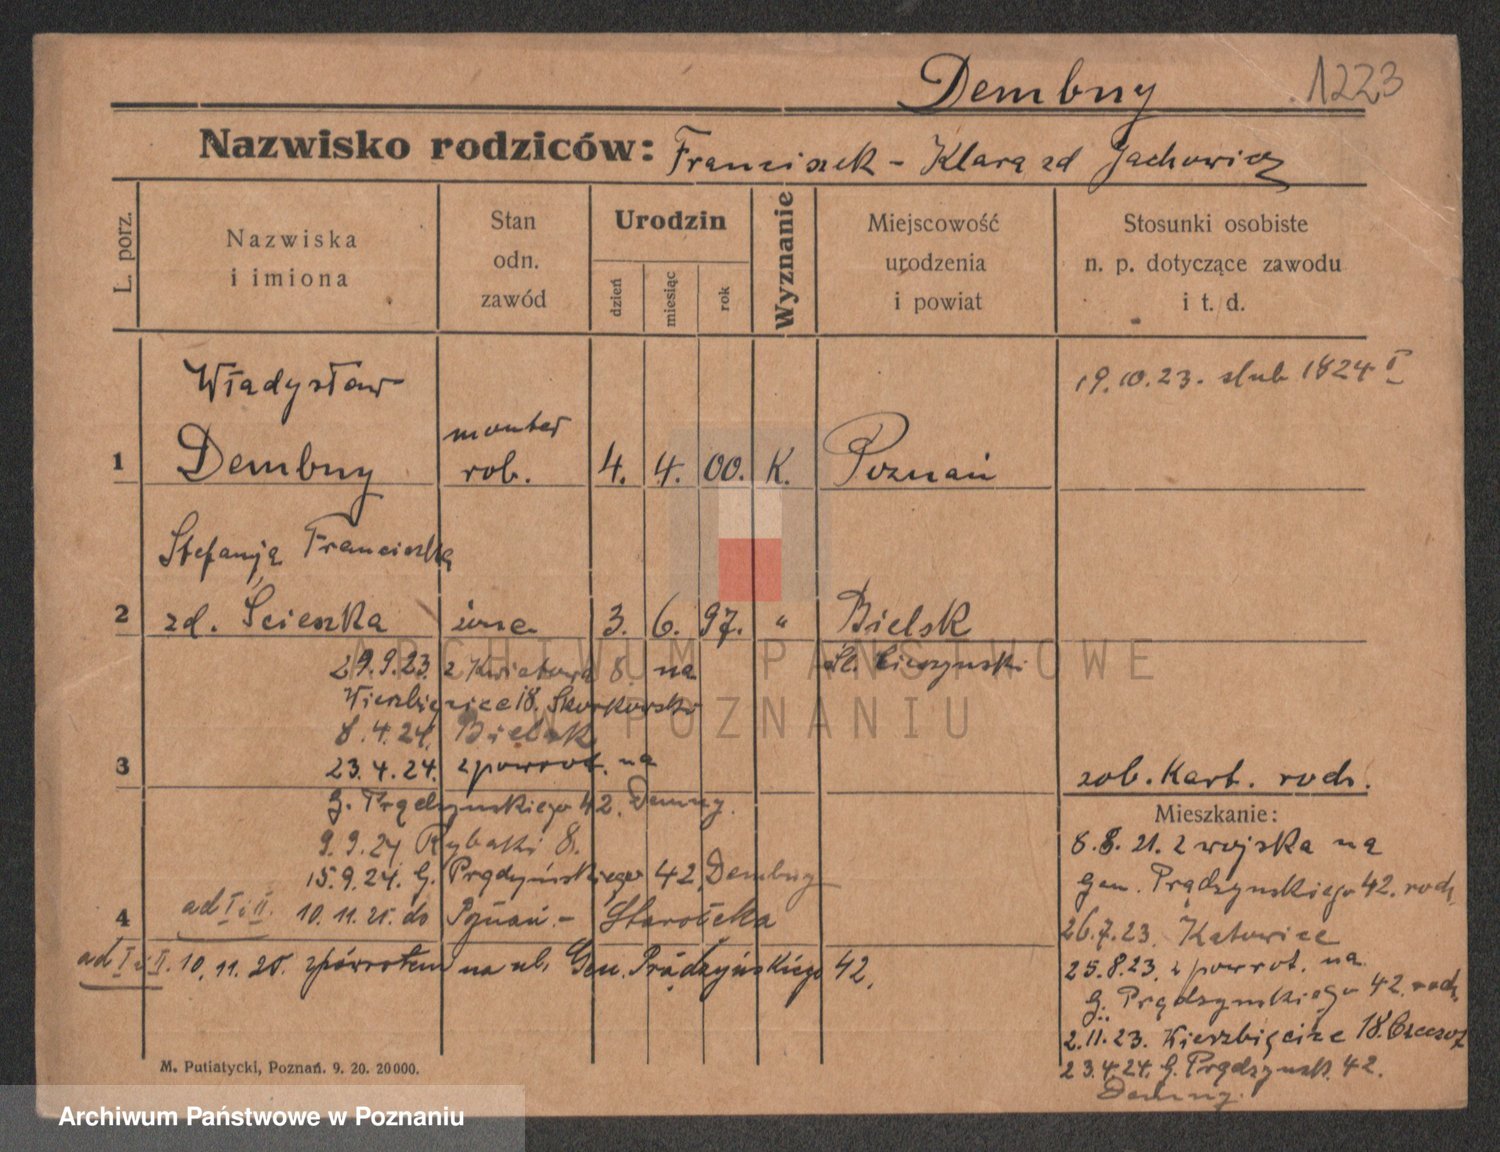 Dembny 1223
Nazwisko rodziców: Franciszek - Klara zd Jachowicz
L. porz.
Nazwiska
i imiona
Stan
odn.
zawód
Urodzin
dzień
miesiąc
rok
Wyznanie
Miejscowość
urodzenia
i powiat
Stosunki osobiste
n. p. dotyczące zawodu
i t. d.
Władysław
1 Dembny
monter
rob.
4. 4. 00. K. Poznań
19.10.23. slub 1824 I
Stefanja Franciszka
2 zd. Ścieszka żona 3. 6. 97. " Bielsk
Śl. Cieszynski
29.9.23. z Kwiatowa 8. na
Wierzbięcice 18.
8.4.24. Bielsk
3 23.4.24. z powrot. na
G. Prądzynskiego 42. Demny.
9.9.24 Rybaki 8.
15.9.24. G. Prądyńskiego 42. Dembny
4 ad I i II. 10.11.25. do Poznań - Starołęka
ad I i II. 10.11.25. zpowrotem na ul. Gen. Prądzyńskiego 42.
zob. Kart. rodz.
Mieszkanie:
8.8.21. z wojska na
Gen. Prądzynskiego 42. rodz.
26.7.23. Katowice
25.8.23. z powrot. na
G. Prądzynskiego 42. rodz.
2.11.23. Wierzbięcice 18.
23.4.24. G. Prądzynsk. 42.
Demny.
M. Putiatycki, Poznań. 9. 20. 20000.
ARCHIWUM PAŃSTWOWE
W POZNANIU
Archiwum Państwowe w Poznaniu